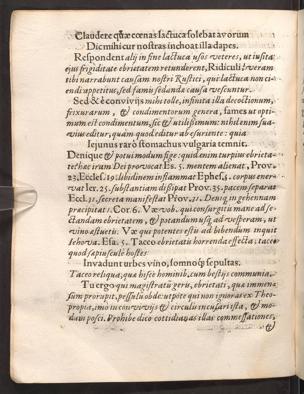 Claudere quæ cœnas lactuca solebat avorum
Dic mihi cur nostras inchoat illa dapes.
Respondent alij in fine lactuca usos veteres, ut iusita
ejus frigiditate ebrietatem retunderent, Ridiculi! veram
tibi narrabunt causam nostri Rustici, qui lactuca non ci-
endi appetitus, sed famis sedandæ causa vescuntur.
Sed & è convivijs mihi tolle, infinita illa decoctionum,
frixurarum, & condimentorum genera, fames ut opti-
mum est condimentum, sic & utilissimum: nihil enim sua-
vius editur, quàm quod editur ab esuriente: quia
Iejunus rarò stomachus vulgaria temnit.
Denique & potui modum fige: quid enim turpius ebrieta-
te hæc iram Dei provocat Esa. 5. mentem alienat, Prov.
23, Eccles. 19. libidinem inflammat Ephes. 5. corpus ener-
vat Ier. 25. substantiam dissipat Prov. 35. pacem separat
Eccl. 31. secreta manifestat Prov. 31. Deniq; in gehennam
præcipitat 1. Cor. 6. Væ vob. qui consurgitis mane ad se-
ctandam ebrietatem, & potandum usq; ad vesperam, ut
vino æstuetis: Væ qui potentes estis ad bibendum inquit
Iehova. Esa. 5. Taceo ebrietatis horrenda effecta: taceo
quod sæpiusculè hostes
Invadunt urbes vino, somnoq; sepultas.
Taceo reliqua, quæ hisce hominib. cum bestijs communia.
Tu ergo qui magistratũ geris, ebrietati, quæ immen-
sum prorupit, pessulũ obde: ut pote qui non ignoras ex Theo-
propia, imò in convivijs & circulis incusari ista, & mo-
davi posci. Prohibe dico cottidianas illas commessationes,
&